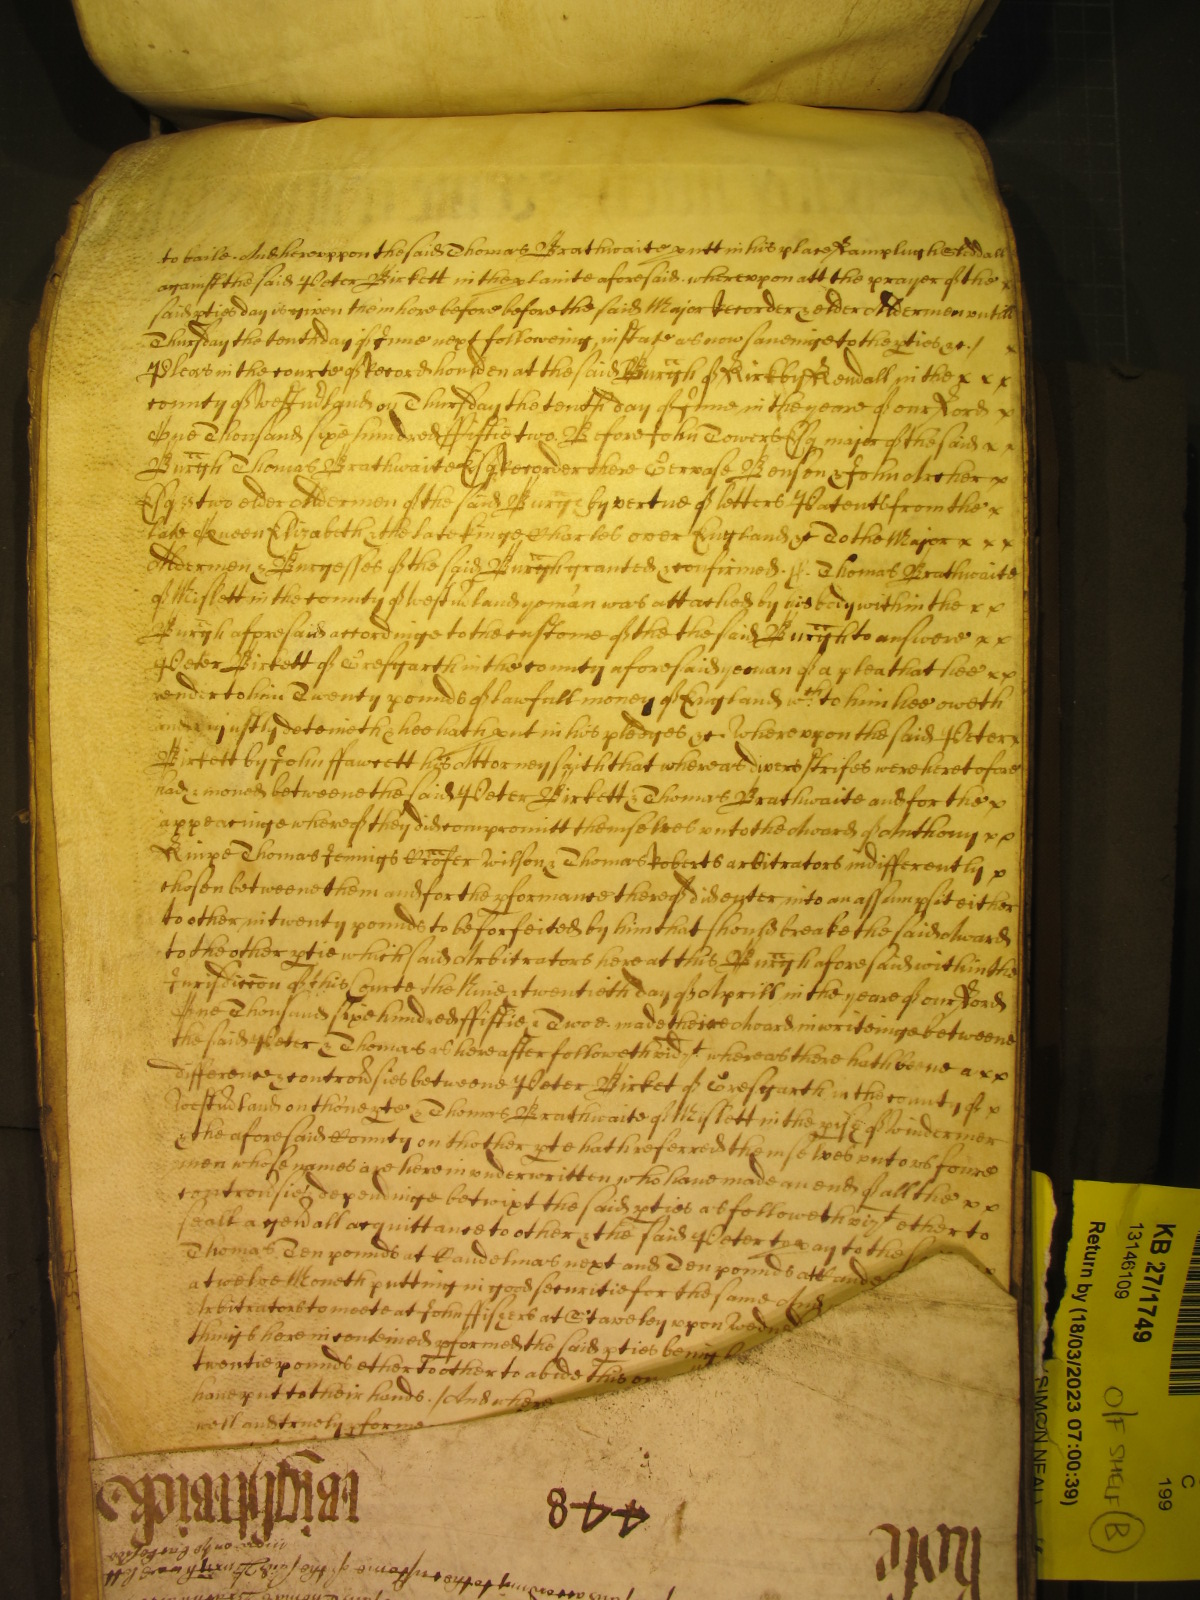 to baile. And hereuppon the said Thomas Brathwaite putt in his place Lamplugh
against the said Peter Birkett in the plainte aforesaid. whereupon att the prayer of the x
said pties day is given them here before before the said Major Recorder & elder Aldermen untill
Thursday the tenth day of June next followeing, in state as now saveinge to the pties &c./ x
Pleas in the courte of Record houlden at the said Burgh of Kirkby Kendall in the x x x
county of Westmrland on Thursday the tenth day of June, in the yeare of our Lord x
One Thousand sixe hundred ffiftie two. Before John Towers Esq major of the said x x
Burgh Thomas Brathwaite Esq Recorder there Gervase Benson & John Archer x
Esqs two elder Aldermen of the said Burgh by vertue of letters Patents from the x
late Queen Elizabeth & the late Kinge Charles over England &c To the Major x x x
Aldermen & Burgesses of the said Burgh granted & confirmed. Thomas Brathwaite
of Mislett in the county of Westmrland yeoman was attached by his body within the x x
Burgh aforesaid accordinge to the custome of the the said Burgh to answere x x
Peter Birkett of Crosgarth in the county aforesaid yeoman of a plea that hee x x
render to him Twenty pounds of lawfull money of England wch to him hee oweth
and unjustly deteineth & hee hath put in his pledges &c. Whereupon the said Peter x
Birkett by John ffawcett his Attorney saith that whereas divers strifes were heretofore
had & moved betweene the said Peter Birkett & Thomas Brathwaite and for the x
appeacinge whereof they did compromitt themselves unto the Award of Anthony x x
Knipe Thomas Jennings Wilson & Thomas Roberts arbitrators indifferently x
chosen betweene them and for the pformance thereof did enter into an assumpsit either
to other, in twenty pounds to be forfeited by him that should breake the said Award
to the other ptie which said Arbitrators here at this Burgh aforesaid within the
Jurisdiccon of this Courte the Nine & twentieth day of Aprill in the yeare of our Lord
One Thousand sixe hundred ffiftie & Twoe. made theire Award in writeinge betweene
the said Peter & Thomas as hereafter followeth vidzt whereas there hath beene a x x
difference & controvsies betweene Peter Birket of Crosgarth in the county of x
Westmrland on thone pte & Thomas Brathwaite of Mislett in the pish of Windermer
& the aforesaid County on thother pte hath referred themselves unto us foure
men whose names are herein underwritten, who have made an end of all the x x
controvsies dependinge betwixt the said pties as followeth vizt ether to
seall a genrall acquittance to other & the said Peter to pay to the
Thomas Ten pounds at Candelmas next and Ten pounds att Cande
a twelve Moneth putting in good securitie for the same And
Arbitrators to meete at John ffishers at Staveley uppon Wedn
things herein conteined pformed the said pties being
twentie pounds ether to other to abide this
have put to their hands. / And where
well and truely pforme
448
KB 27/1749
13146109
Return by (18/03/2023 07:00:39)
SIMON NEAL
C
199
O/F SHELF
B